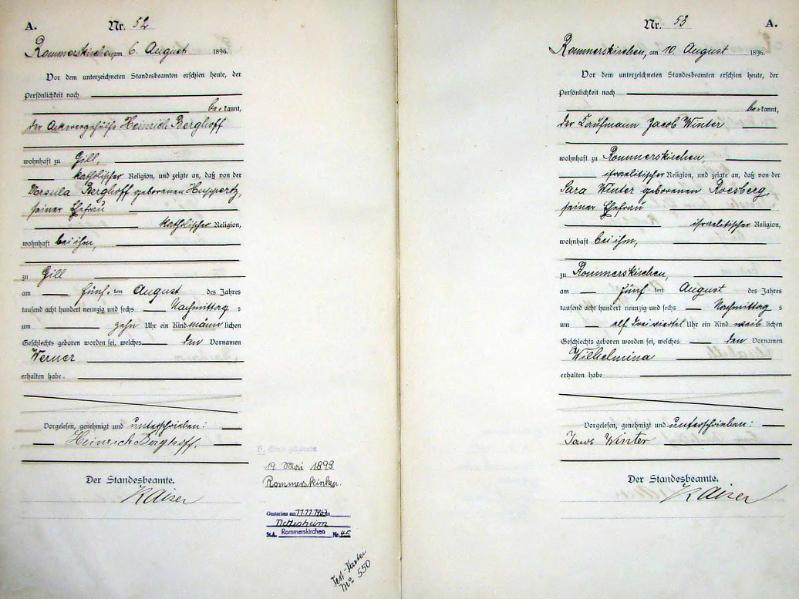 A. Nr. 52
Rommerskirchen, am 6. August 1896.
Vor dem unterzeichneten Standesbeamten erschien heute, der
Persönlichkeit nach
bekannt,
der Ackerergehülfe Heinrich Berghoff
wohnhaft zu Gill,
katholischer Religion, und zeigte an, daß von der
Ursula Berghoff geborenen Huppertz,
seiner Ehefrau
katholischer Religion,
wohnhaft bei ihm,
zu Gill
am fünften August des Jahres
tausend acht hundert neunzig und sechs Nachmittags
um zehn Uhr ein Kind männlichen
Geschlechts geboren worden sei, welches den Vornamen
Werner
erhalten habe.
Vorgelesen, genehmigt und unterschrieben:
Heinrich Berghoff.
Der Standesbeamte.
Kaiser
19 Mai 1899
Rommerskirchen.
Gestorben am 11.11.1963
Nettesheim
St.A. Rommerskirchen Nr. 45
Test-Kartei
No 550
Nr. 53 A.
Rommerskirchen, am 10. August 1896.
Vor dem unterzeichneten Standesbeamten erschien heute, der
Persönlichkeit nach
bekannt,
der Kaufmann Jacob Winter
wohnhaft zu Rommerskirchen,
israelitischer Religion, und zeigte an, daß von der
Sara Winter geborenen Roesberg,
seiner Ehefrau
israelitischer Religion,
wohnhaft bei ihm,
zu Rommerskirchen,
am fünften August des Jahres
tausend acht hundert neunzig und sechs Nachmittags
um elf dreiviertel Uhr ein Kind weiblichen
Geschlechts geboren worden sei, welches den Vornamen
Wilhelmina
erhalten habe
Vorgelesen, genehmigt und unterschrieben:
Winter
Der Standesbeamte.
Kaiser